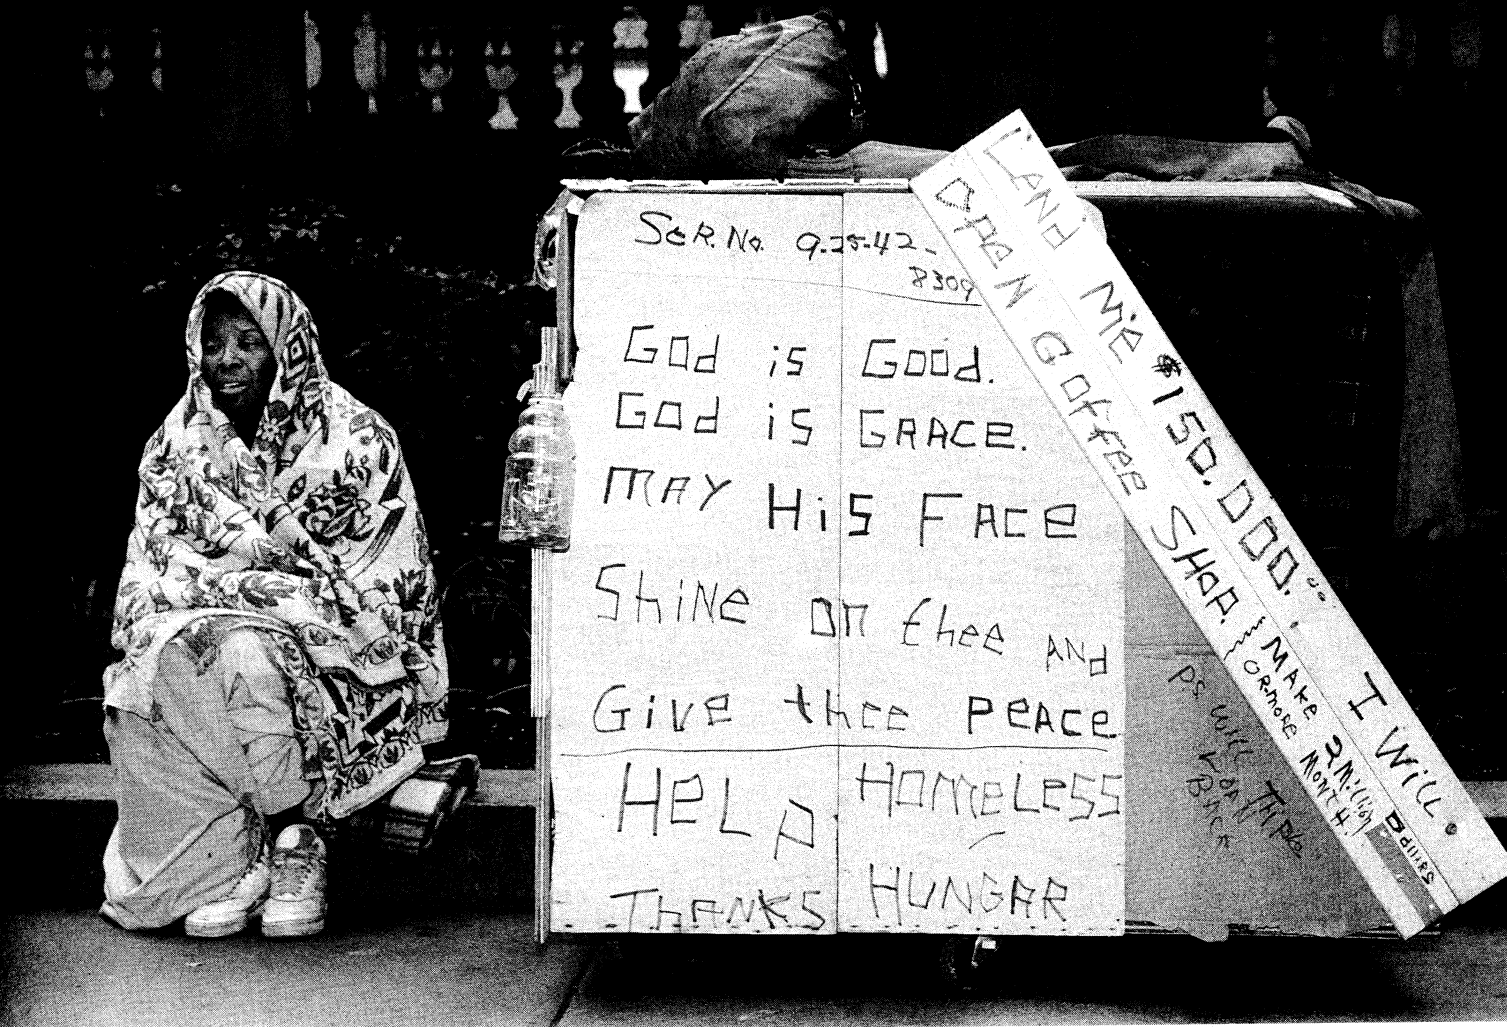 SER. No. 9-25-42-
8309
God is Good.
God is GRACE.
MAY His FACE
ShiNe on thee AND
Give thee PeACe
HeLP HOMeLeSS
THANKS HUNGAR
LANd Me $150.000.. I WiLL.
OPeN Goffee SHoP. MAKE 2 Million Dollars
OR-MORE MONTH.
P.S. WiLL
LOAN
BACK